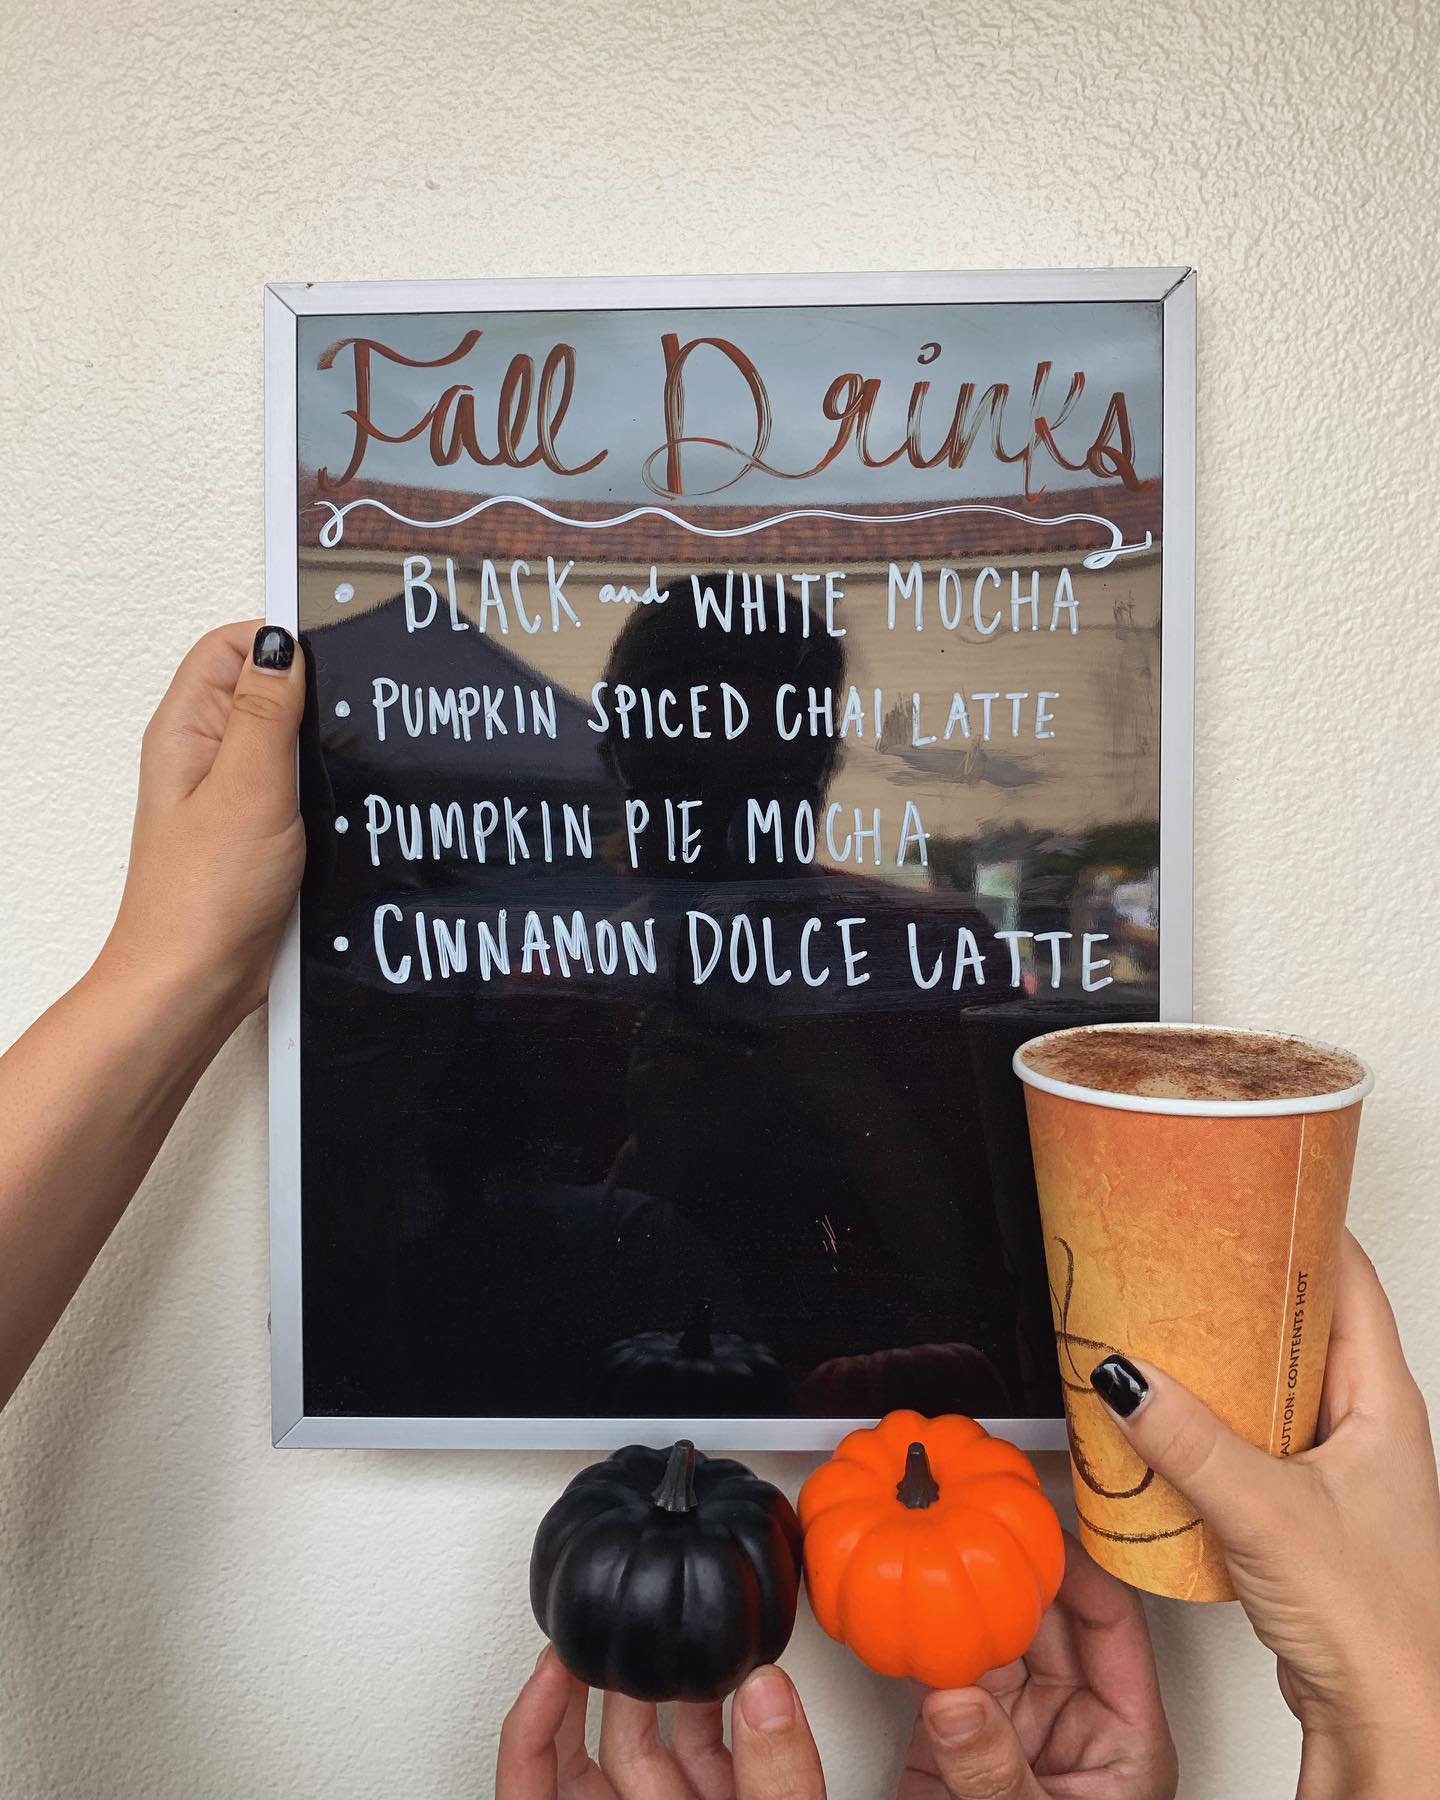 Fall Drinks
• BLACK and WHITE MOCHA
• PUMPKIN SPICED CHAI LATTE
• PUMPKIN PIE MOCHA
• CINNAMON DOLCE LATTE
AUTION: CONTENTS HOT